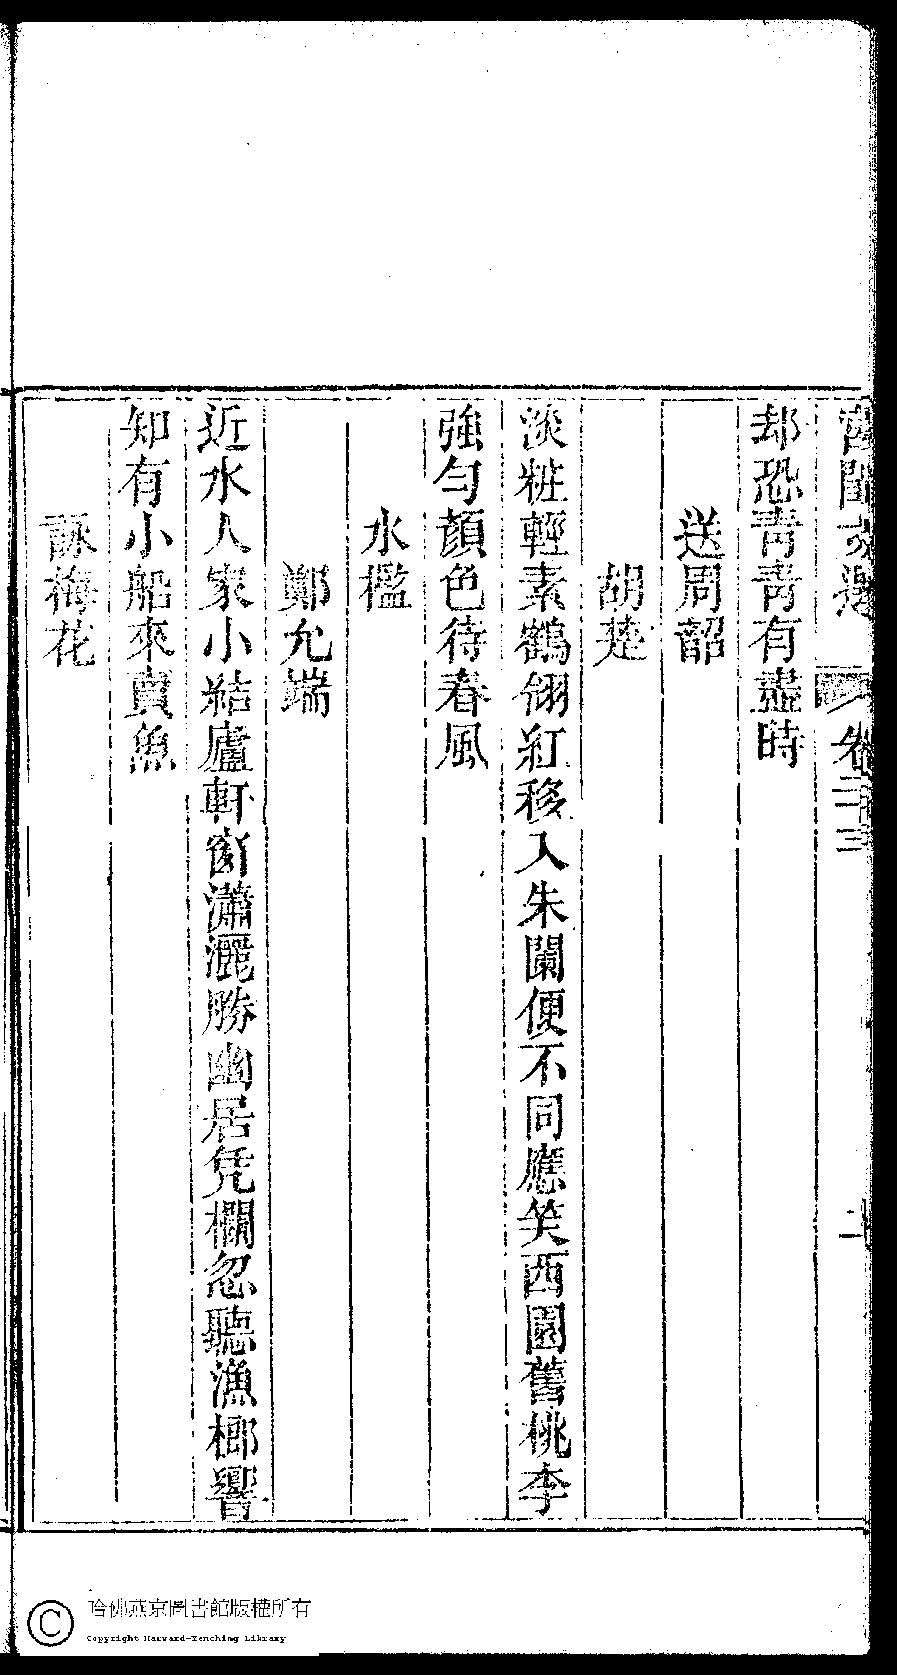 宮閨文選 卷二十三
却恐青青有盡時
送周韶
胡楚
淡粧輕素鶴翎紅移入朱闌便不同應笑西園舊桃李
強勻顏色待春風
水檻
鄭允端
近水人家小結廬軒窗瀟灑勝幽居凭欄忽聽漁榔響
知有小船來賣魚
詠梅花
哈佛燕京圖書館版權所有
Copyright Harvard-Yenching Library